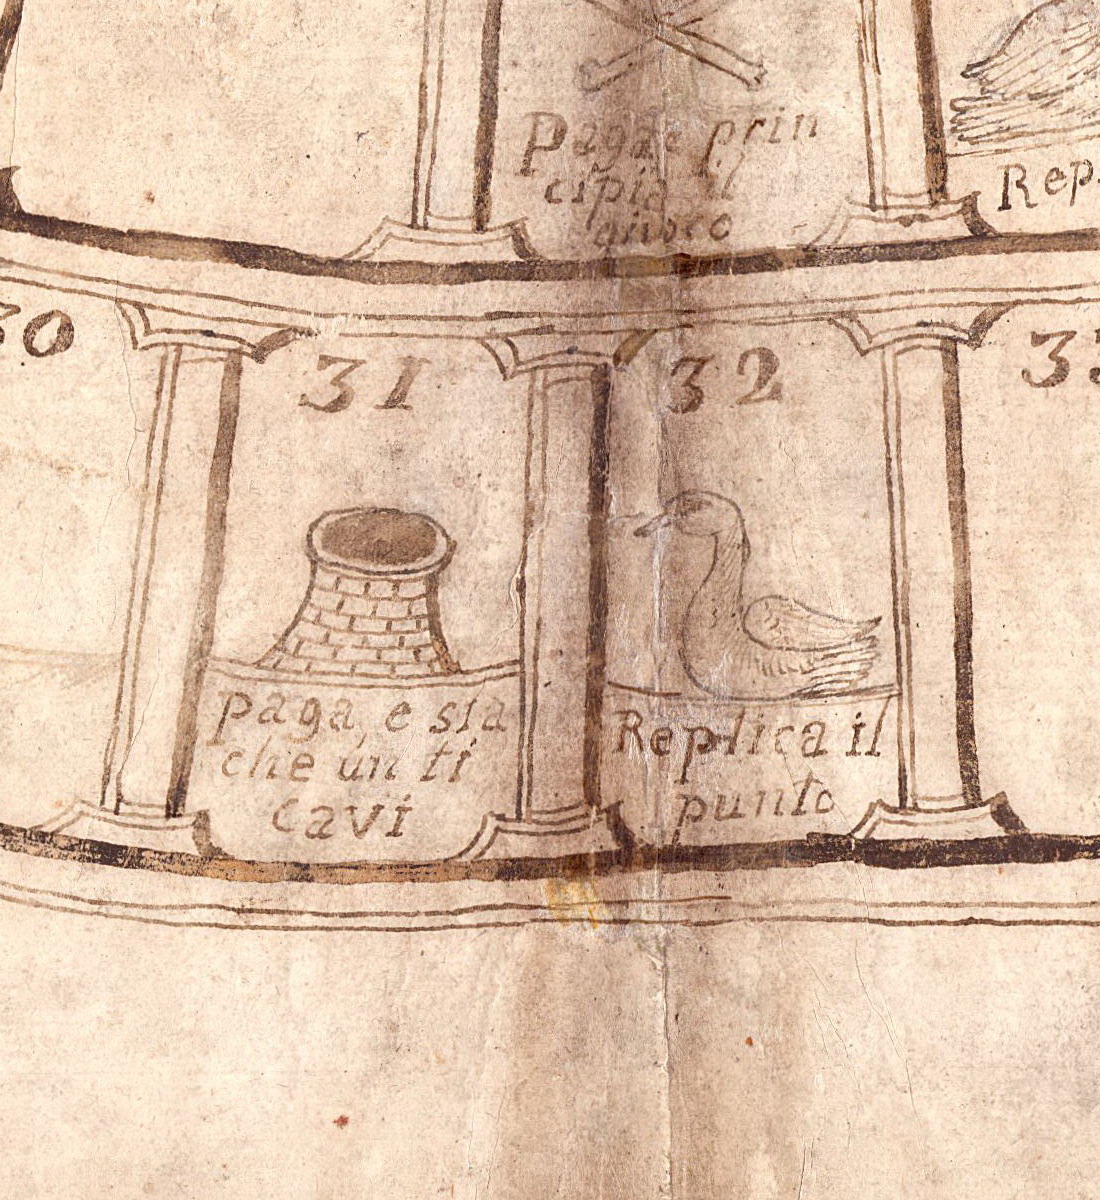 Paga e prin
cipia il
giuoco
Rep
30
31
32
33
paga, e sta
che un ti
cavi
Replica il
punto